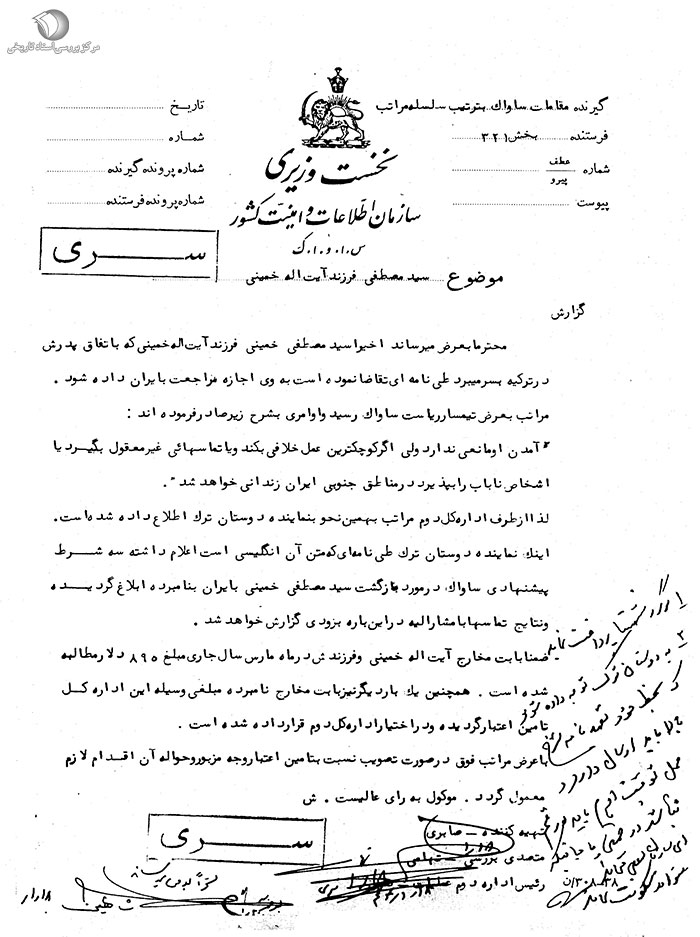 مرکز بررسی اسناد تاریخی
گیرنده مقامات ساواك بترتیب سلسله مراتب
فرستنده بخش ۳۲۱
شماره عطف
پیرو
پیوست
تاریخ
شماره
شماره پرونده گیرنده
شماره پرونده فرستنده
نخست وزیری
سازمان اطلاعات و امنیت کشور
س.ا.و.ا.ك
سری
موضوع سید مصطفی فرزند آیت اله خمینی
گزارش
محترما بعرض میرساند اخیرا سید مصطفی خمینی فرزند آیت اله خمینی که با تفاق پدرش
در ترکیه بسر میبرد طی نامه ای تقاضا نموده است به وی اجازه مراجعت بایران داده شود .
مراتب بعرض تیمسار ریاست ساواك رسید و اوامری بشرح زیر صادر فرموده اند :
"آمدن او مانعی ندارد ولی اگر کوچکترین عمل خلافی بکند و یا تماسهائی غیر معقول بگیرد یا
اشخاص ناباب را بپذیرد در مناطق جنوبی ایران زندانی خواهد شد".
لذا از طرف اداره کل دوم مراتب بهمین نحو بنماینده دوستان ترك اطلاع داده شده است.
اینك نماینده دوستان ترك طی نامه ای که متن آن انگلیسی است اعلام داشته سه شرط
پیشنهادی ساواك در مورد بازگشت سید مصطفی خمینی بایران بنامبرده ابلاغ گردیده
و نتایج تماسها با مشارالیه در این باره بزودی گزارش خواهد شد .
ضمنا بابت مخارج آیت اله خمینی و فرزندش در ماه مارس سال جاری مبلغ ۸۹۵ دلار مطالبه
شده است . همچنین یك بار دیگر نیز بابت مخارج نامبرده مبلغی وسیله این اداره کل
تامین اعتبار گردیده و در اختیار اداره کل دوم قرار داده شده است .
با عرض مراتب فوق در صورت تصویب نسبت بتامین اعتبار وجه مزبور و حواله آن اقدام لازم
معمول گردد . موکول به رای عالیست . ش
تهیه کننده - صابری
متصدی بررسی -
رئیس اداره دوم عملیات
سری
۲ به دوستان ترک توجه داده شود
که
باید ارسال دارد